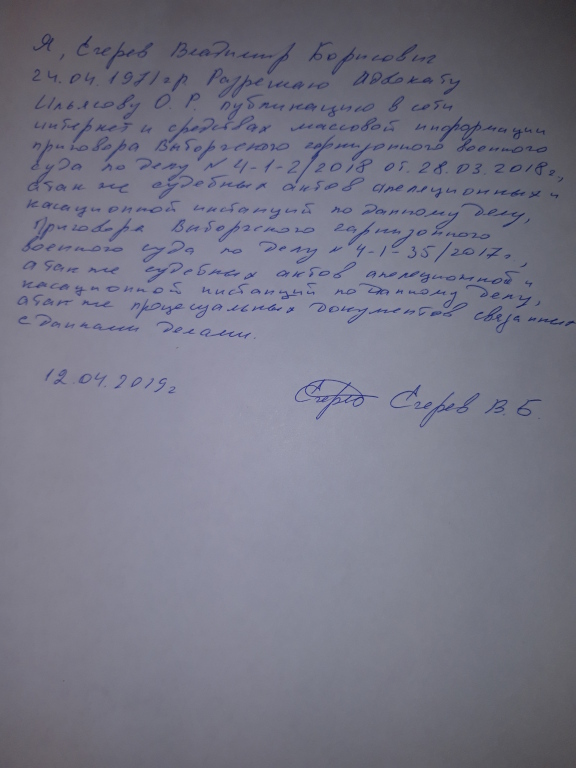 Я, Сгерев Владимир Борисович
24.04.1971гр. Разрешаю Адвокату
О. Р. публикацию в сети
интернет и средствах массовой информации
приговора Выборгского гарнизонного военного
суда по делу N 4-1-2/2018 от. 28.03.2018г.,
атак же судебных актов апеляционных и
касационной инстанций по данному делу,
Приговора Выборгского гарнизонного
военного суда по делу N 4-1-35/2017г,
атак же судебных актов апеляционной и
касационной инстанций по данному делу,
атак же процесуальных документов связанных
с данными делами.
12.04.2019г
Сгерев В. Б.